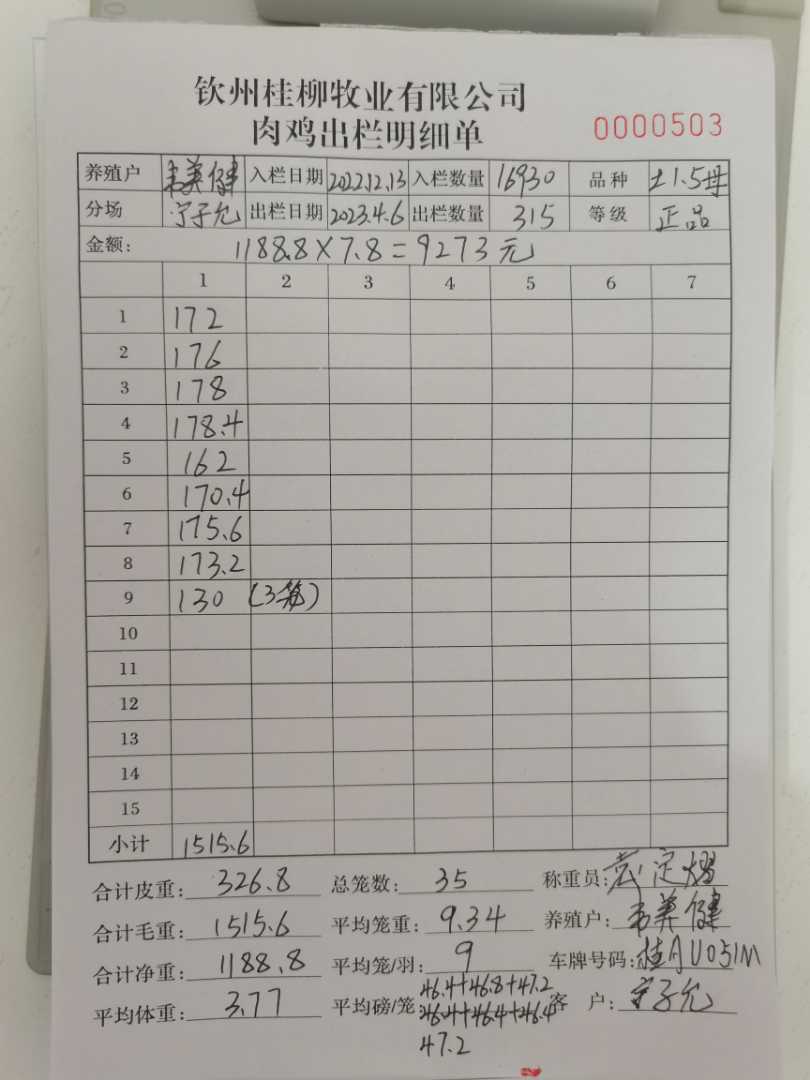 钦州桂柳牧业有限公司
肉鸡出栏明细单
0000503
养殖户 韦美健 入栏日期 2022.12.13 入栏数量 16930 品种 土1.5母
分场 宁子允 出栏日期 2023.4.6 出栏数量 315 等级 正品
金额: 1188.8×7.8=9273元
1 2 3 4 5 6 7
1 172
2 176
3 178
4 178.4
5 162
6 170.4
7 175.6
8 173.2
9 130 (3笼)
10
11
12
13
14
15
小计 1515.6
合计皮重: 326.8 总笼数: 35 称重员: 定
合计毛重: 1515.6 平均笼重: 9.34 养殖户: 韦美健
合计净重: 1188.8 平均笼/羽: 9 车牌号码: 桂AU051M
平均体重: 3.77 平均磅/笼 46.4+46.8+47.2 客 户: 宁子允
46.4+46.4+46.4
47.2